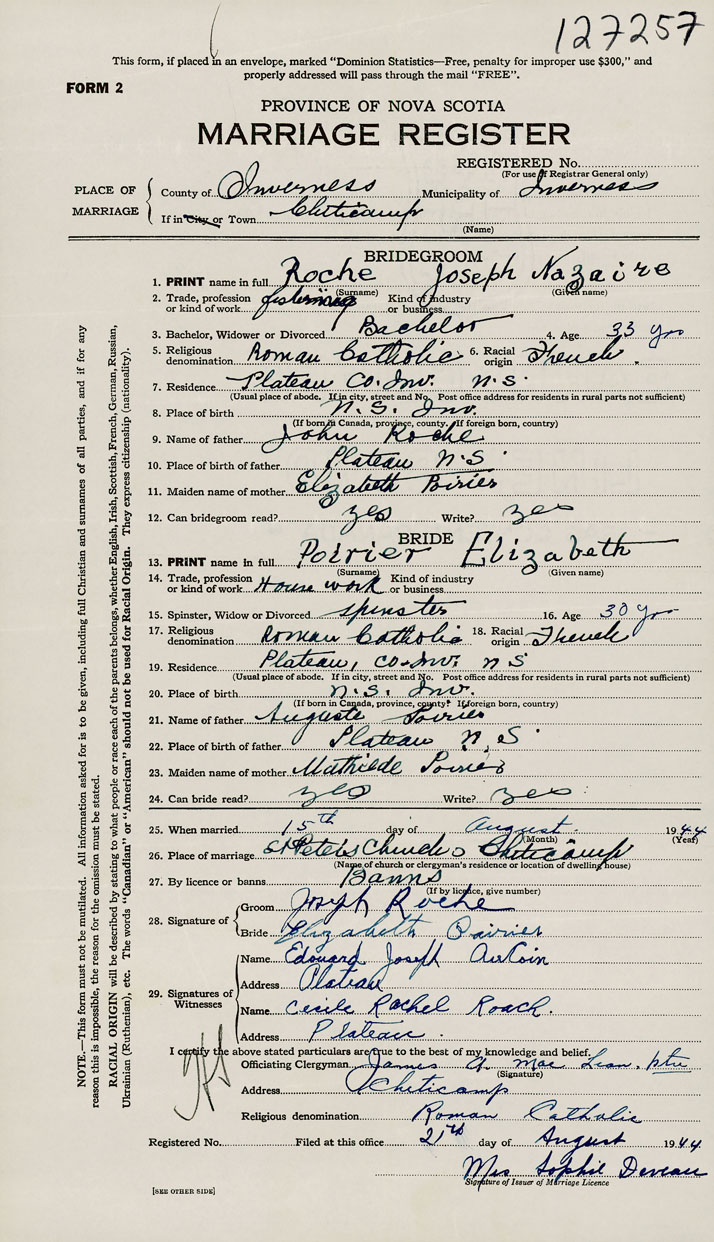 127257
This form, if placed in an envelope, marked "Dominion Statistics—Free, penalty for improper use $300," and
properly addressed will pass through the mail "FREE".
FORM 2
PROVINCE OF NOVA SCOTIA
MARRIAGE REGISTER
REGISTERED No.
(For use of Registrar General only)
PLACE OF MARRIAGE
County of Inverness Municipality of Inverness
If in City or Town Cheticamp
(Name)
BRIDEGROOM
1. PRINT name in full Roche Joseph Nazaire
(Surname) (Given name)
2. Trade, profession or kind of work Kind of industry or business
3. Bachelor, Widower or Divorced Bachelor 4. Age 33 yrs
5. Religious denomination Roman Catholic 6. Racial origin French
7. Residence Plateau Co. Inv. N.S.
(Usual place of abode. If in city, street and No. Post office address for residents in rural parts not sufficient)
8. Place of birth N.S. Inv.
(If born in Canada, province, county. If foreign born, country)
9. Name of father John Roche
10. Place of birth of father Plateau N.S
11. Maiden name of mother Elizabeth Poirier
12. Can bridegroom read? yes Write? yes
BRIDE
13. PRINT name in full Poirier Elizabeth
(Surname) (Given name)
14. Trade, profession or kind of work House work Kind of industry or business
15. Spinster, Widow or Divorced spinster 16. Age 30 yrs
17. Religious denomination Roman Catholic 18. Racial origin French
19. Residence Plateau, Co. Inv. N S
(Usual place of abode. If in city, street and No. Post office address for residents in rural parts not sufficient)
20. Place of birth N.S. Inv.
(If born in Canada, province, county? If foreign born, country)
21. Name of father Auguste Poirier
22. Place of birth of father Plateau N.S.
23. Maiden name of mother Mathilde Poirier
24. Can bride read? yes Write? yes
25. When married 15th day of August 1944
(Month) (Year)
26. Place of marriage St Peters Church Cheticamp
(Name of church or clergyman's residence or location of dwelling house)
27. By licence or banns Banns
(If by licence, give number)
28. Signature of
Groom Joseph Roche
Bride Elizabeth Poirier
29. Signatures of Witnesses
Name Edouard Joseph AuCoin
Address Plateau
Name Cecile Rachel Roach.
Address Plateau
I certify the above stated particulars are true to the best of my knowledge and belief.
Officiating Clergyman James A. Mac Lean, ptre
(Signature)
Address Cheticamp
Religious denomination Roman Catholic
Registered No. Filed at this office 21st day of August 1944
Mrs Sophie Deveau
Signature of Issuer of Marriage Licence
[SEE OTHER SIDE]
NOTE.—This form must not be mutilated. All information asked for is to be given, including full Christian and surnames of all parties, and if for any
reason this is impossible, the reason for the omission must be stated.
RACIAL ORIGIN will be described by stating to what people or race each of the parents belongs, whether English, Irish, Scottish, French, German, Russian,
Ukrainian (Ruthenian), etc. The words "Canadian" or "American" should not be used for Racial Origin. They express citizenship (nationality).